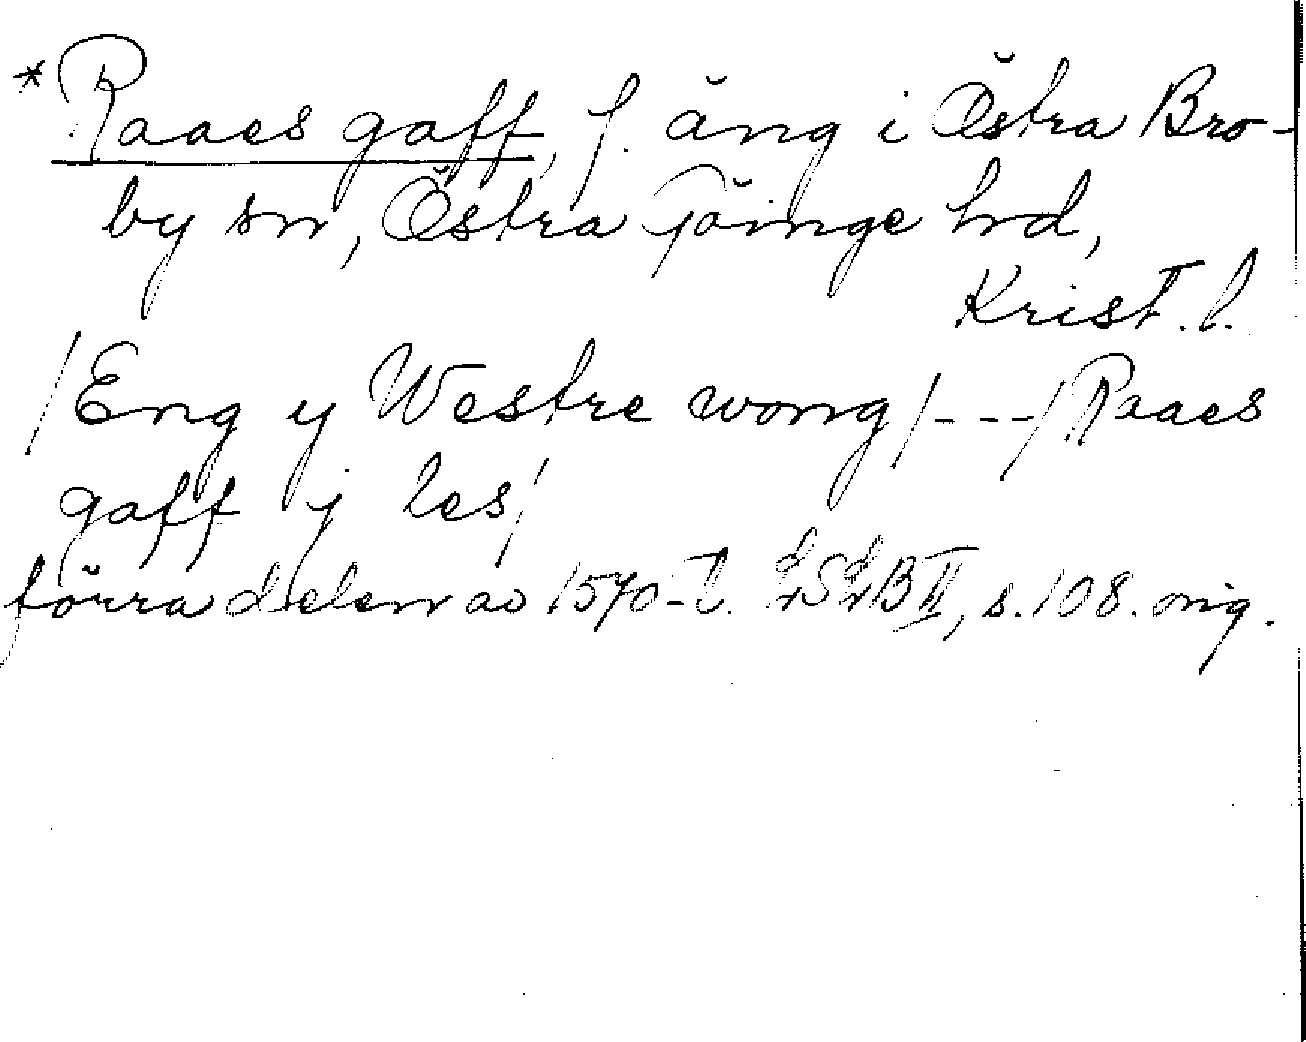 *Raaes gaff, f. äng i Östra Bro-
by sn, Östra Göinge hd,
Krist. l.
/Eng y Westre wong/---/Raaes
gaff j les/
förra delen av 1570-t. LSLB II, s. 108. orig.